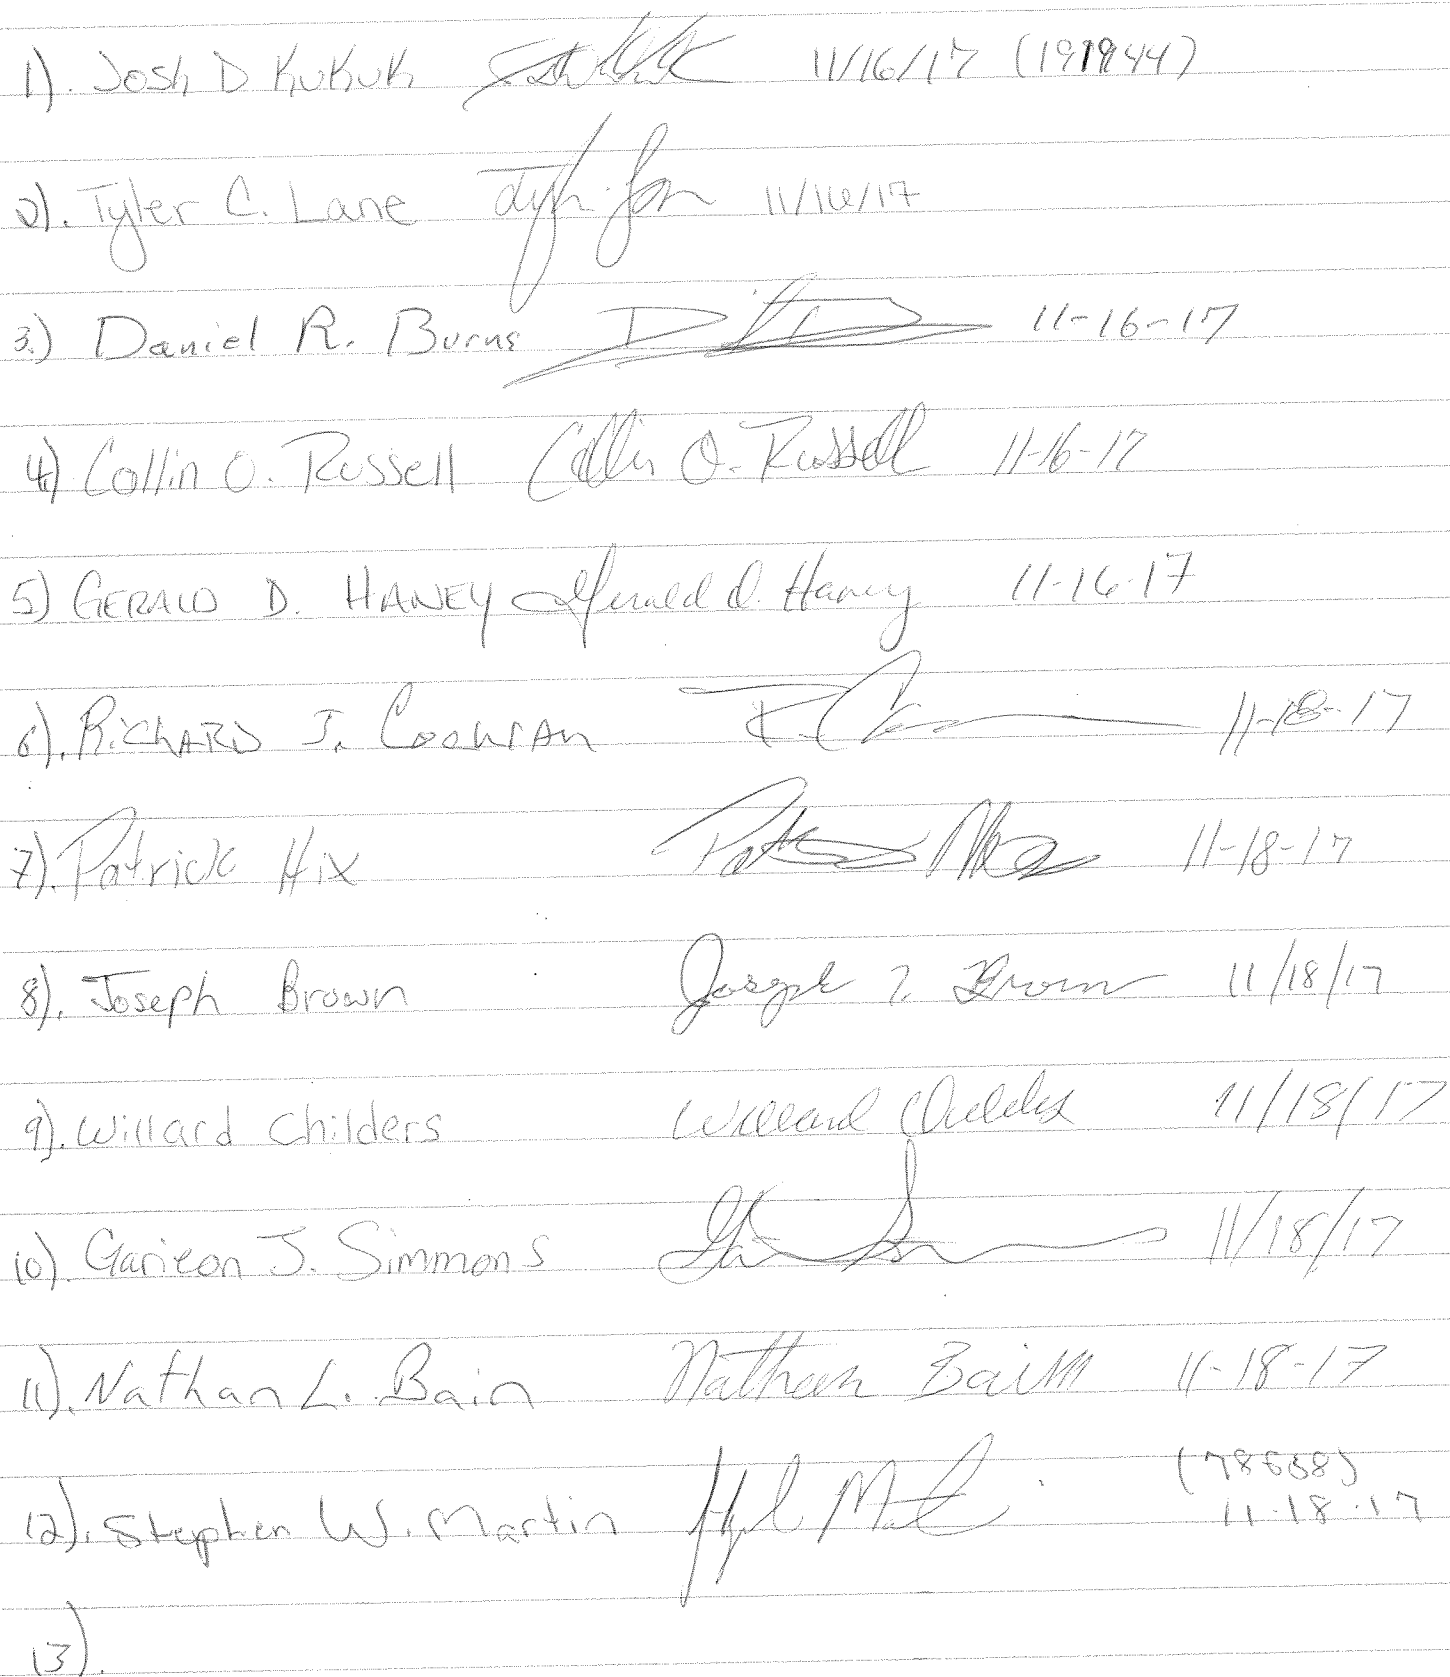 1). Josh D Kukuk 11/16/17 (191944)
2). Tyler C. Lane Tyler Lane 11/16/17
3.) Daniel R. Burns 11-16-17
4.) Collin O. Russell Collin O. Russell 11-16-17
5) GERALD D. HANEY Gerald D. Haney 11-16-17
6). RichARD J. CochrAn 11-18-17
7). Patrick Hix 11-18-17
8). Joseph Brown Joseph Brown 11/18/17
9). Willard Childers Willard Childers 11/18/17
10). J. Simmons 11/18/17
11). Nathan L. Bain Nathan Bain 11-18-17
12). Stephen W. Martin (78658)
11-18-17
13).